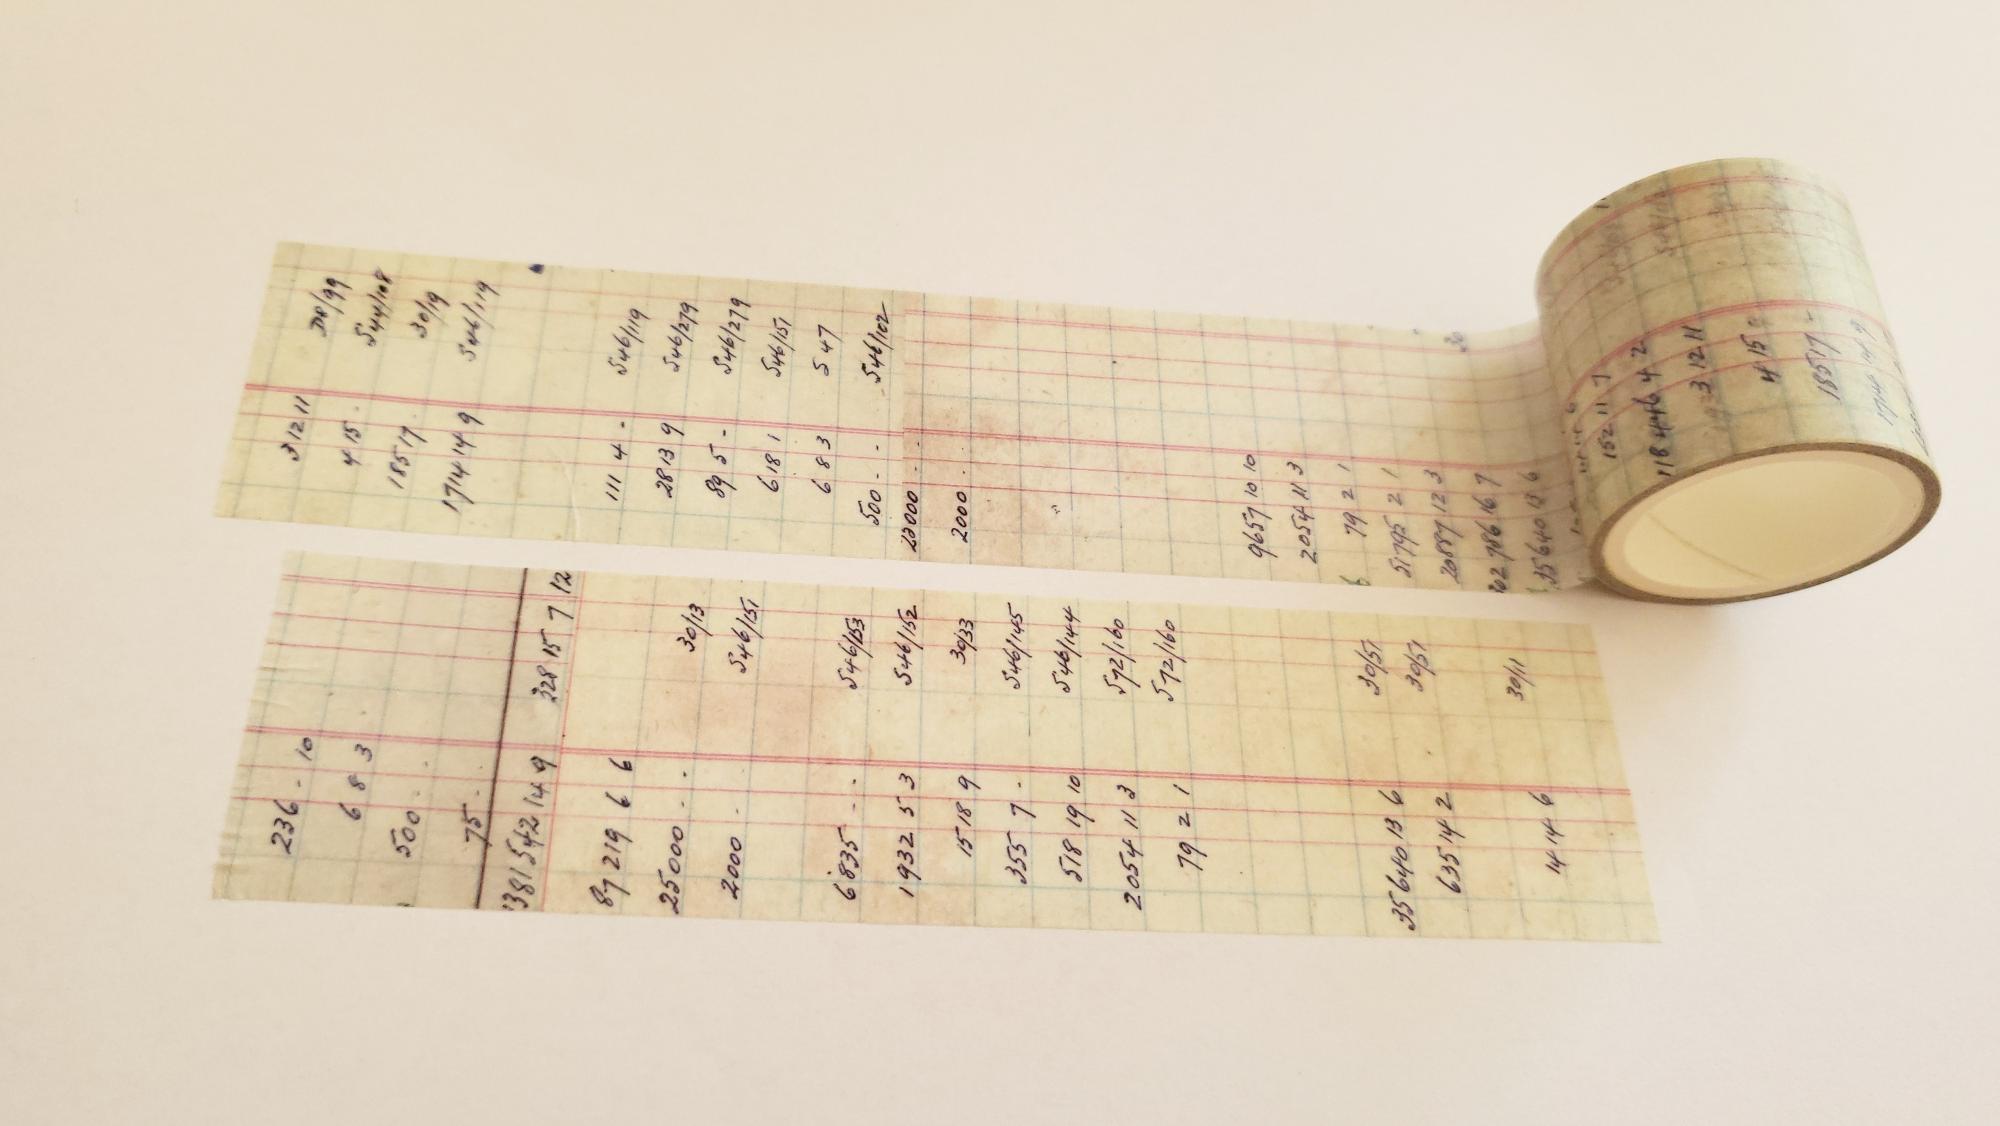 DR/99 3 12 11
544/108 4 15 -
30/9 185 17 -
546/119 1714 14 9
546/119 111 4 -
546/279 28 13 9
546/279 89 5 -
546/151 6 18 1
547 6 8 3
546/102 500 - -
23000 - -
2000 - -
9657 10 10
2054 11 3
79 2 1
51795 2 1
20887 12 3
302786 16 7
30
35640 13 6
152 11 7
118446 4 2
3 12 11
4 15
185 17 -
1714 14 9
236 - 10
6 8 3
500 - -
75 -
228 15 7 12
381542 14 9
89219 6 6
30/13 25000 - -
546/151 2000 - -
546/153 6835 - -
546/152 1932 5 3
30/33 15 18 9
546/145 355 7 -
546/144 518 19 10
572/160 2054 11 3
572/160 79 2 1
30/51 35640 13 6
30/51 635 14 2
30/11 14 14 6